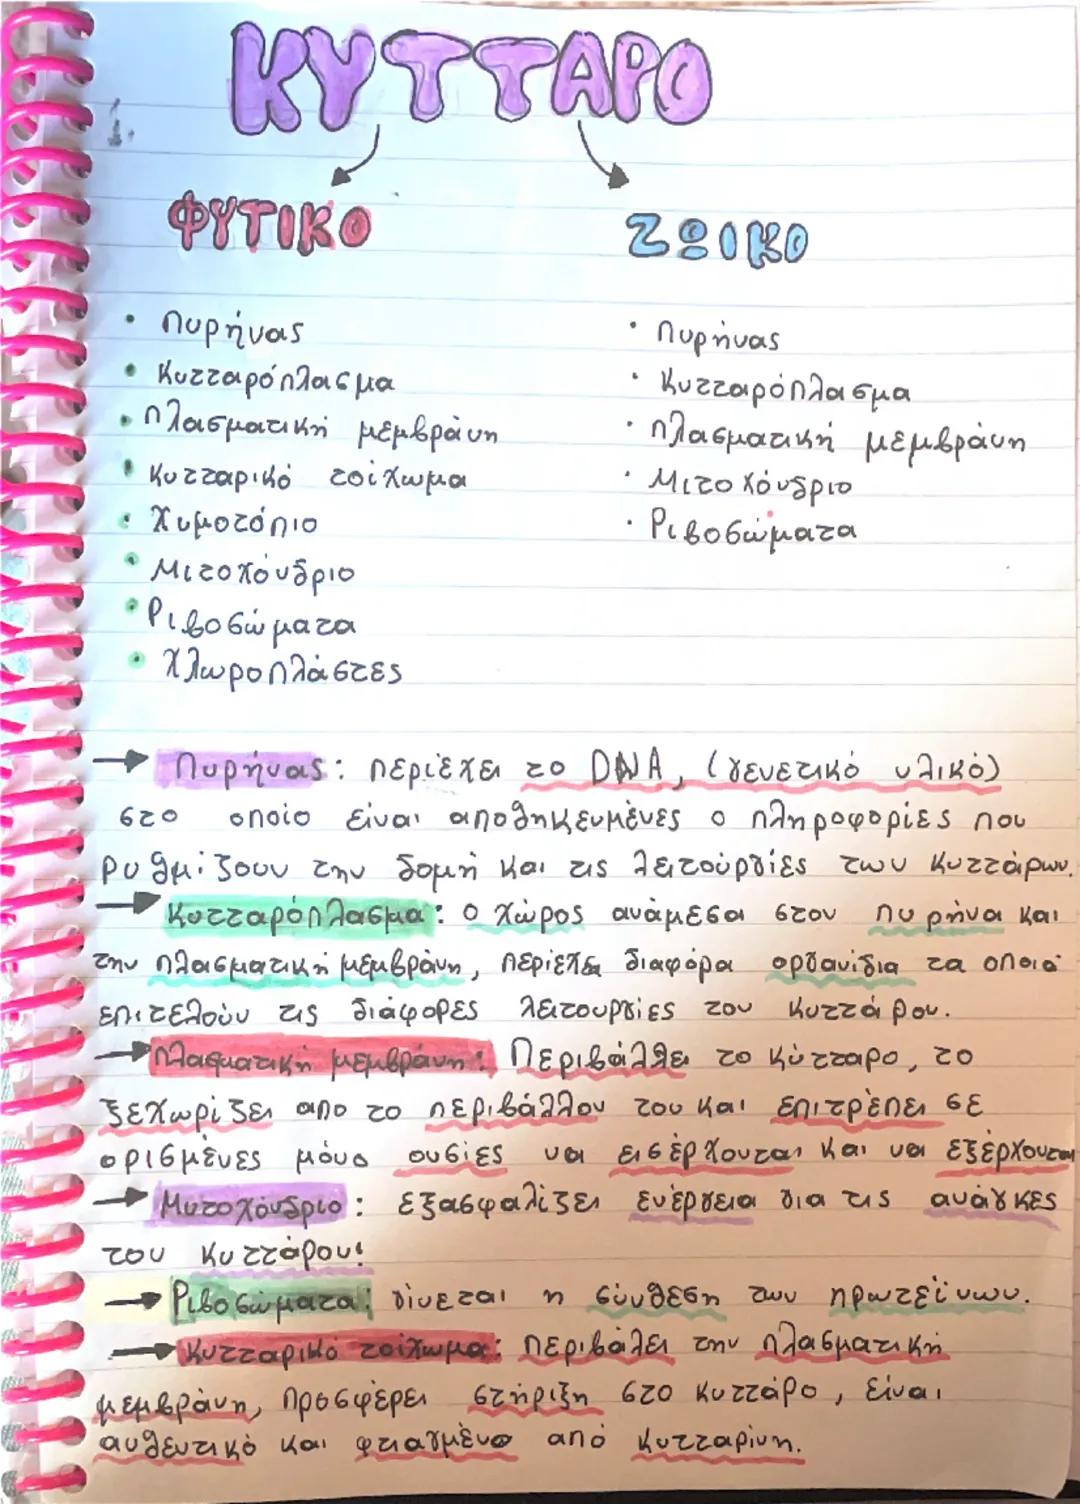 ΚΥΤΤΑΡΟ
ΦΥΤΙΚΟ
ΖΩΙΚΟ
• Πυρήνας
• Κυτταρόπλασμα
• Πλασματική μεμβράνη
• Κυτταρικό τοίχωμα
• Χυμοτόπιο
• Μιτοχόνδριο
• Ριβοσώματα
• Χλωροπλάστες
• Πυρήνας
• Κυτταρόπλασμα
• Πλασματική μεμβράνη
• Μιτοχόνδριο
• Ριβοσώματα
→ Πυρήνας: περιέχει το DNA, (γενετικό υλικό)
στο οποίο είναι αποθηκευμένες ο πληροφορίες που
ρυθμίζουν την δομή και τις λειτούργίες των κυττάρων.
→ Κυτταρόπλασμα: ο χώρος ανάμεσα στον πυρήνα και
την πλασματική μεμβράνη, περιέχει διαφόρα οργανίδια τα οποία
επιτελούν τις διάφορες λειτουργίες του κυττάρου.
→ Πλασματική μεμβράνη: Περιβάλλει το κύτταρο, το
ξεχωρίζει απο το περιβάλλον του και επιτρέπει σε
ορισμένες μόνο ουσίες να εισέρχονται και να εξέρχονται
→ Μιτοχόνδριο: εξασφαλίζει ενέργεια για τις ανάγκες
του κυττάρου!
→ Ριβοσώματα: γίνεται η σύνθεση των πρωτεϊνων.
→ Κυτταρικό τοίχωμα: περιβάλει την πλασματική
μεμβράνη, προσφέρει στήριξη στο κυττάρο, είναι
αυθεντικό και φτιαγμένο από κυτταρίνη.